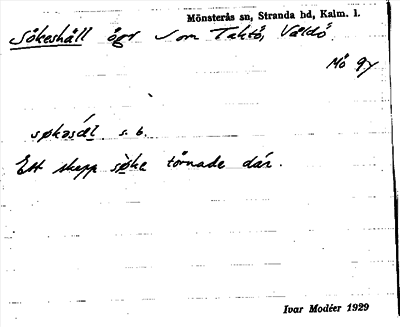 Mönsterås sn, Stranda hd, Kalm. l.
Sökeshåll ögr S om Taktö, Valdö.
Mö 9y
søkəsål s. b.
Ett skepp söke törnade där.
Ivar Modéer 1929